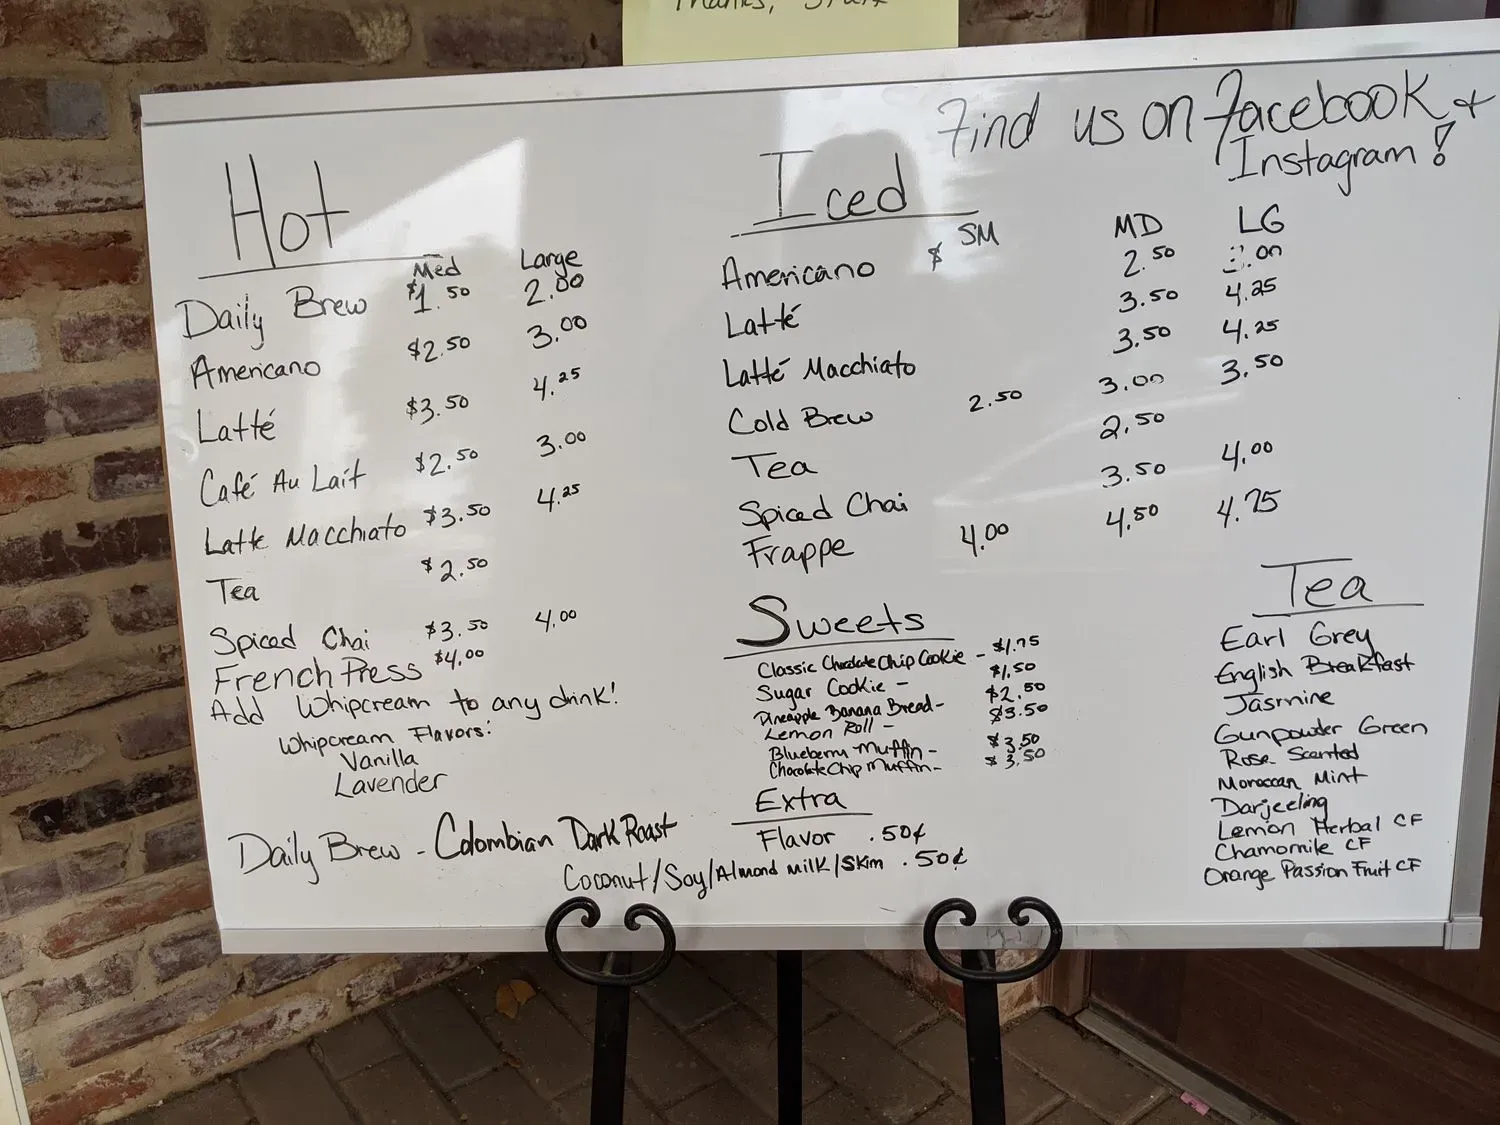 Thanks, Staff
Find us on Facebook +
Instagram!
Hot
Med Large
Daily Brew $1.50 2.00
Americano $2.50 3.00
Latté $3.50 4.25
Café Au Lait $2.50 3.00
Latte Macchiato $3.50 4.25
Tea $2.50
Spiced Chai $3.50 4.00
French Press $4.00
Add Whipcream to any drink!
Whipcream Flavors:
Vanilla
Lavender
Daily Brew - Colombian Dark Roast
Iced
$ SM MD LG
Americano 2.50 3.00
Latté 3.50 4.25
Latté Macchiato 3.50 4.25
Cold Brew 2.50 3.00 3.50
Tea 2.50
Spiced Chai 3.50 4.00
Frappe 4.00 4.50 4.75
Sweets
Classic Chocolate Chip Cookie - $1.75
Sugar Cookie - $1.50
Pineapple Banana Bread - $2.50
Lemon Roll - $3.50
Blueberry Muffin - $3.50
Chocolate Chip Muffin - $3.50
Extra
Flavor .50¢
Coconut/Soy/Almond milk/Skim .50¢
Tea
Earl Grey
English Breakfast
Jasmine
Gunpowder Green
Rose Scented
Moroccan Mint
Darjeeling
Lemon Herbal CF
Chamomile CF
Orange Passion Fruit CF